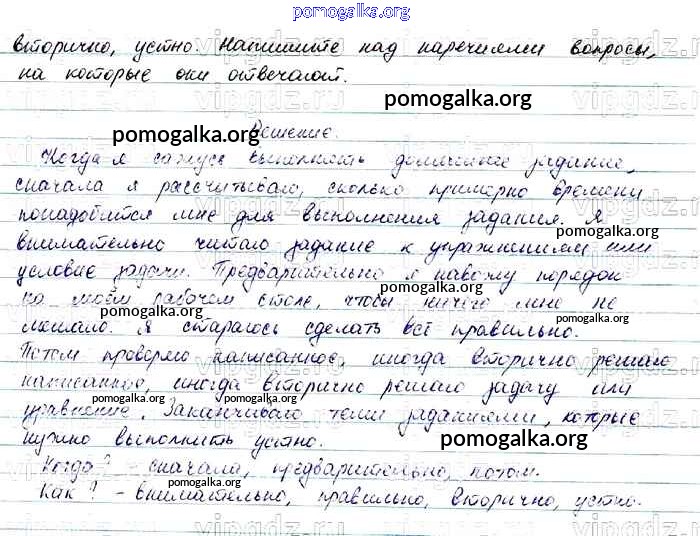 pomogalka.org
вторично, устно. Напишите над наречиями вопросы,
на которые они отвечают.
pomogalka.org
pomogalka.org
Решение.
Когда я сажусь выполнять домашнее задание,
сначала я рассчитываю, сколько примерно времени
понадобится мне для выполнения задания. Я
внимательно читаю задание к упражнениям или
условие задачи. Предварительно я навожу порядок
на моём рабочем столе, чтобы ничего мне не
мешало. Я стараюсь сделать всё правильно.
Потом проверяю написанное, иногда вторично решаю
написанное, иногда вторично решаю задачу или
уравнение. Заканчиваю теми заданиями, которые
нужно выполнить устно.
pomogalka.org
Когда? - сначала, предварительно, потом.
Как? - внимательно, правильно, вторично, устно.